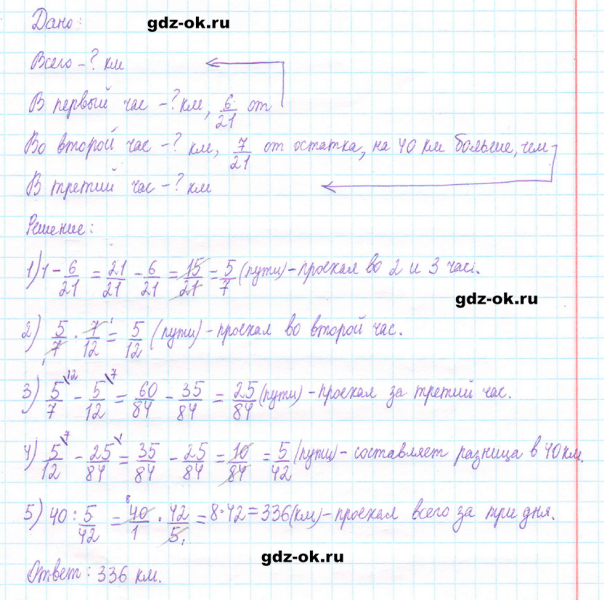 Дано:
gdz-ok.ru
Всего -? км
В первый час -? км, 6/21 от
Во второй час -? км, 7/21 от остатка, на 40 км больше, чем
В третий час -? км
Решение:
1) 1 - 6/21 = 21/21 - 6/21 = 15/21 = 5/7 (пути) - проехал во 2 и 3 час.
gdz-ok.ru
2) 5/7 · 7/12 = 5/12 (пути) - проехал во второй час.
3) 5/7 - 5/12 = 60/84 - 35/84 = 25/84 (пути) - проехал за третий час.
4) 5/12 - 25/84 = 35/84 - 25/84 = 10/84 = 5/42 (пути) - составляет разница в 40 км.
5) 40 : 5/42 = 40/1 · 42/5 = 8·42 = 336 (км) - проехал всего за три дня.
gdz-ok.ru
Ответ: 336 км.